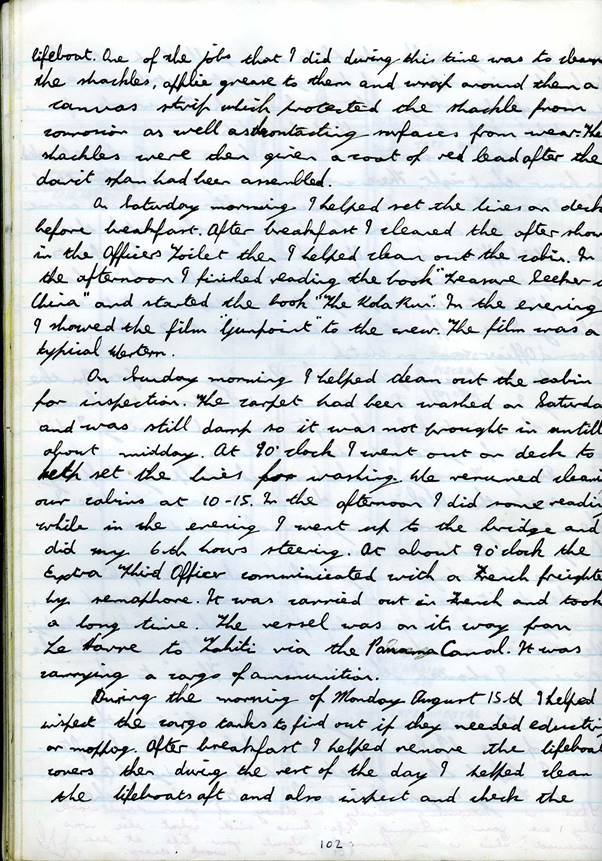 lifeboat. One of the jobs that I did during this time was to clean
the shackles, applie grease to them and wrap around them a
canvas strip which protected the shackle from
corrosion as well as contacting surfaces from wear. The
shackles were then given a coat of red lead after the
davit span had been assembled.
On Saturday morning I helped set the lines on deck
before breakfast. After breakfast I cleared the after show
in the Officers Toilet then I helped clean out the cabin. In
the afternoon I finished reading the book "Treasure Seeker
China" and started the book "The Kola Run". In the evening
I showed the film "Gunpoint" to the crew. The film was a
typical Western.
On Sunday morning I helped clean out the cabin
for inspection. The carpet had been washed on Saturda
and was still damp so it was not brought in untill
about midday. At 9 o'clock I went out on deck to
set the lines for washing. We resumed cleani
our cabins at 10-15. In the afternoon I did some readin
while in the evening I went up to the bridge and
did my 6th hours steering. At about 9 o'clock the
Extra Third Officer communicated with a French freighte
by semaphore. It was carried out in French and took
a long time. The vessel was on its way from
Le Havre to Tahiti via the Panama Canal. It was
carrying a cargo of ammunition.
During the morning of Monday August 15th I helped
inspect the cargo tanks to find out if they needed educti
or mopping. After breakfast I helped remove the lifeboat
covers then during the rest of the day I helped clean
the lifeboats aft and also inspect and check the
102